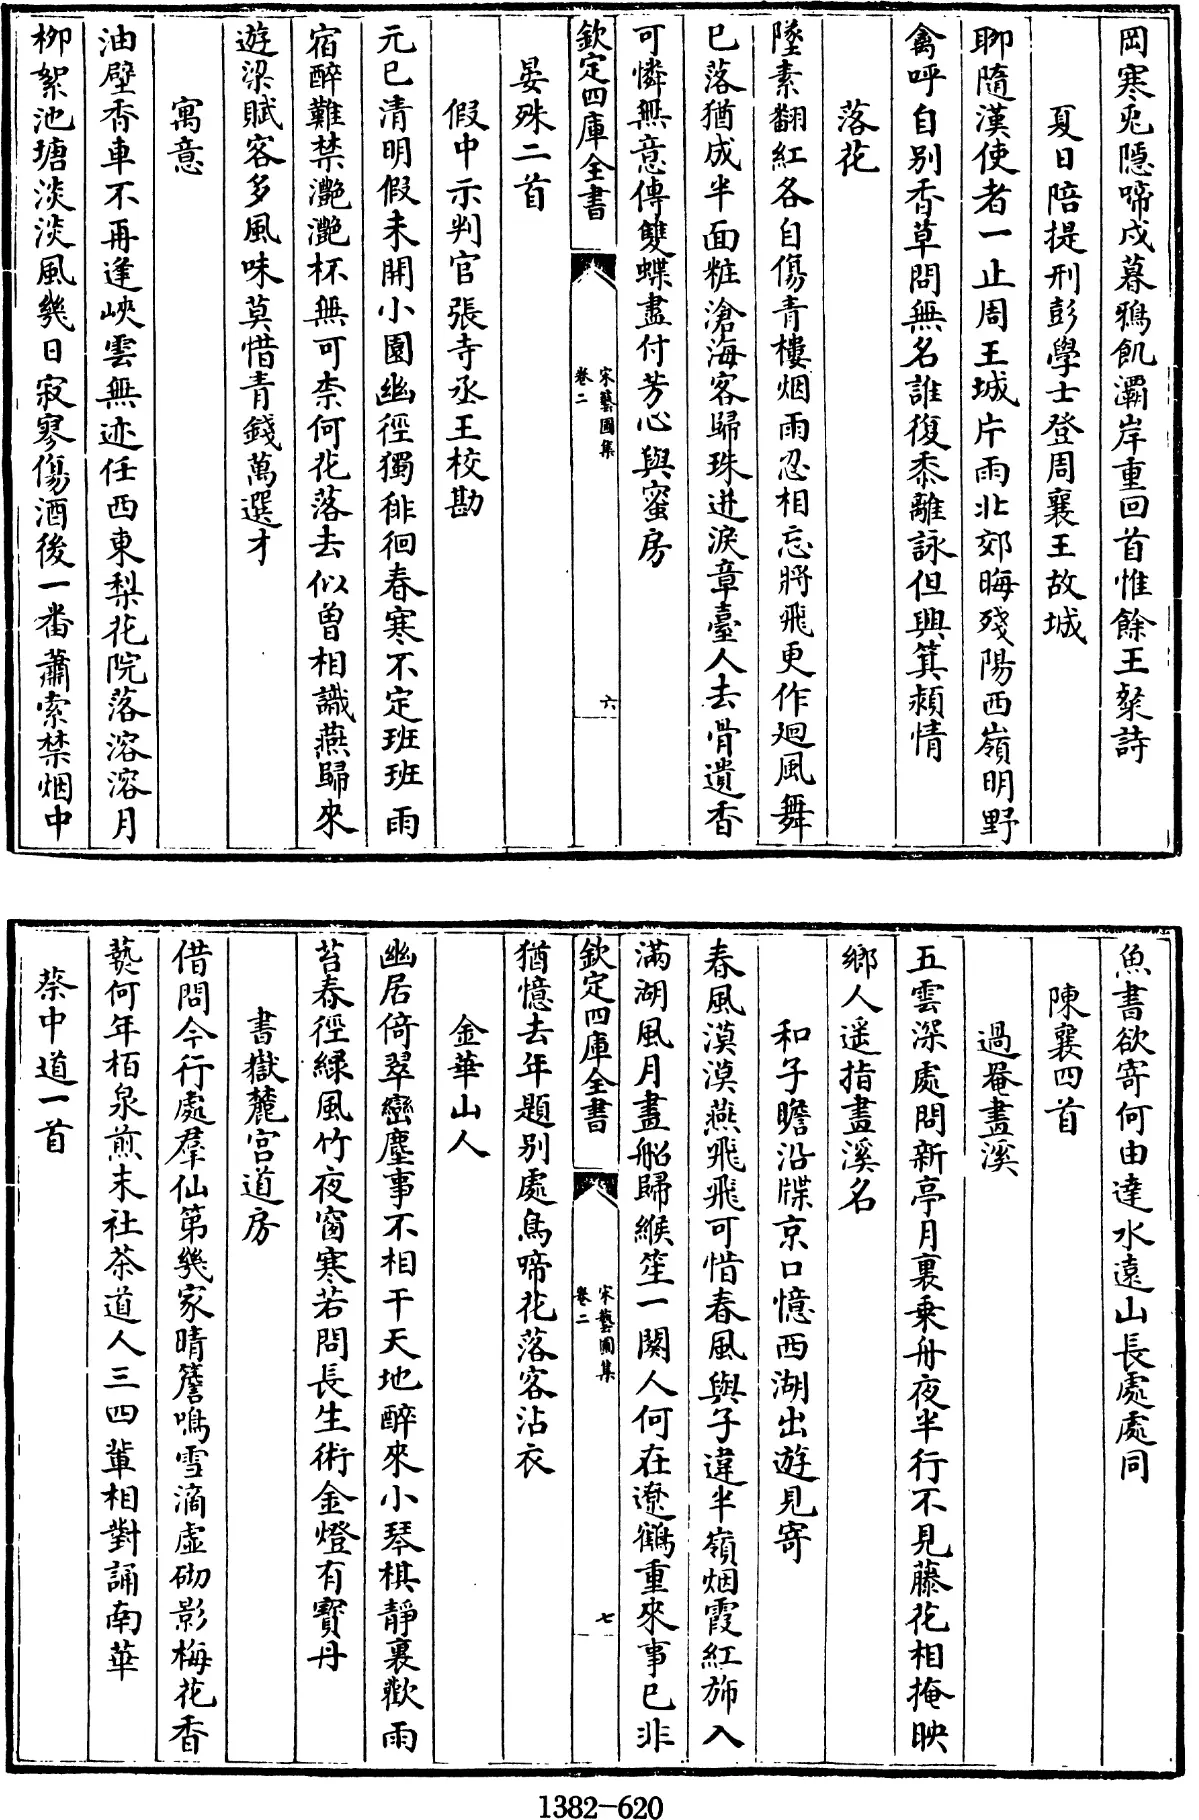 岡寒兎隱啼戍暮鴉飢灞岸重回首惟餘王粲詩
夏日陪提刑彭學士登周襄王故城
聊隨漢使者一止周王城片雨北郊晦殘陽西嶺明野
禽呼自别香草問無名誰復黍離詠但興箕潁情
落花
墜素翻紅各自傷青樓烟雨忍相忘將飛更作廻風舞
已落猶成半面粧滄海客歸珠迸淚章臺人去骨遺香
可憐無意傳雙蝶盡付芳心與蜜房
欽定四庫全書
宋藝圃集
卷二
六
晏殊二首
假中示判官張寺丞王校勘
元巳清明假未開小園幽徑獨徘徊春寒不定班班雨
宿醉難禁灧灧杯無可柰何花落去似曾相識燕歸來
遊梁賦客多風味莫惜青錢萬選才
寓意
油壁香車不再逢峽雲無迹任西東梨花院落溶溶月
栁絮池塘淡淡風幾日寂寥傷酒後一番蕭索禁烟中
魚書欲寄何由達水遠山長處處同
陳襄四首
過罨畫溪
五雲深處問新亭月裏乘舟夜半行不見藤花相掩映
鄉人遥指畫溪名
和子瞻沿牒京口憶西湖出遊見寄
春風漠漠燕飛飛可惜春風與子違半嶺烟霞紅斾入
滿湖風月畫船歸緱笙一闋人何在遼鶴重來事已非
欽定四庫全書
宋藝圃集
卷二
七
猶憶去年題别處鳥啼花落客沾衣
金華山人
幽居倚翠巒塵事不相干天地醉來小琴棋靜裏歡雨
苔春徑緑風竹夜窗寒若問長生術金燈有寳丹
書嶽麓宫道房
借問今行處羣仙第幾家晴簷鳴雪滴虚砌影梅花香
爇何年栢泉煎未社茶道人三四輩相對誦南華
蔡中道一首
1382-620